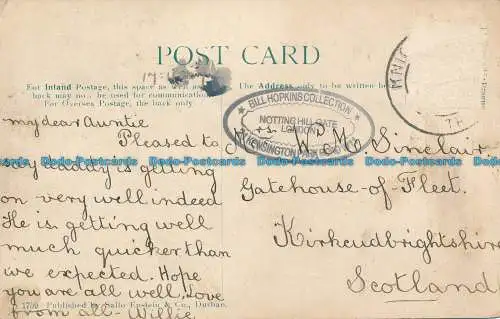 POST CARD
For Inland Postage, this space as well as
back may now be used for communication.
For Oversea Postage, the back only
The Address only to be written
BILL HOPKINS COLLECTION
NOTTING HILL GATE
LONDON
KENSINGTON
Dodo-Postcards Dodo-Postcards Dodo-Postcards Dodo-Postcards Dodo-Postcards
my dear Auntie
Pleased to
say daddy is getting
on very well indeed
He is getting well
much quicker than
we expected. Hope
you are all well, Love
from all - Willie.
Sinclair
Gatehouse-of-Fleet.
Kirkcudbrightshire
Scotland
Published by Sallo Epstein & Co., Durban.